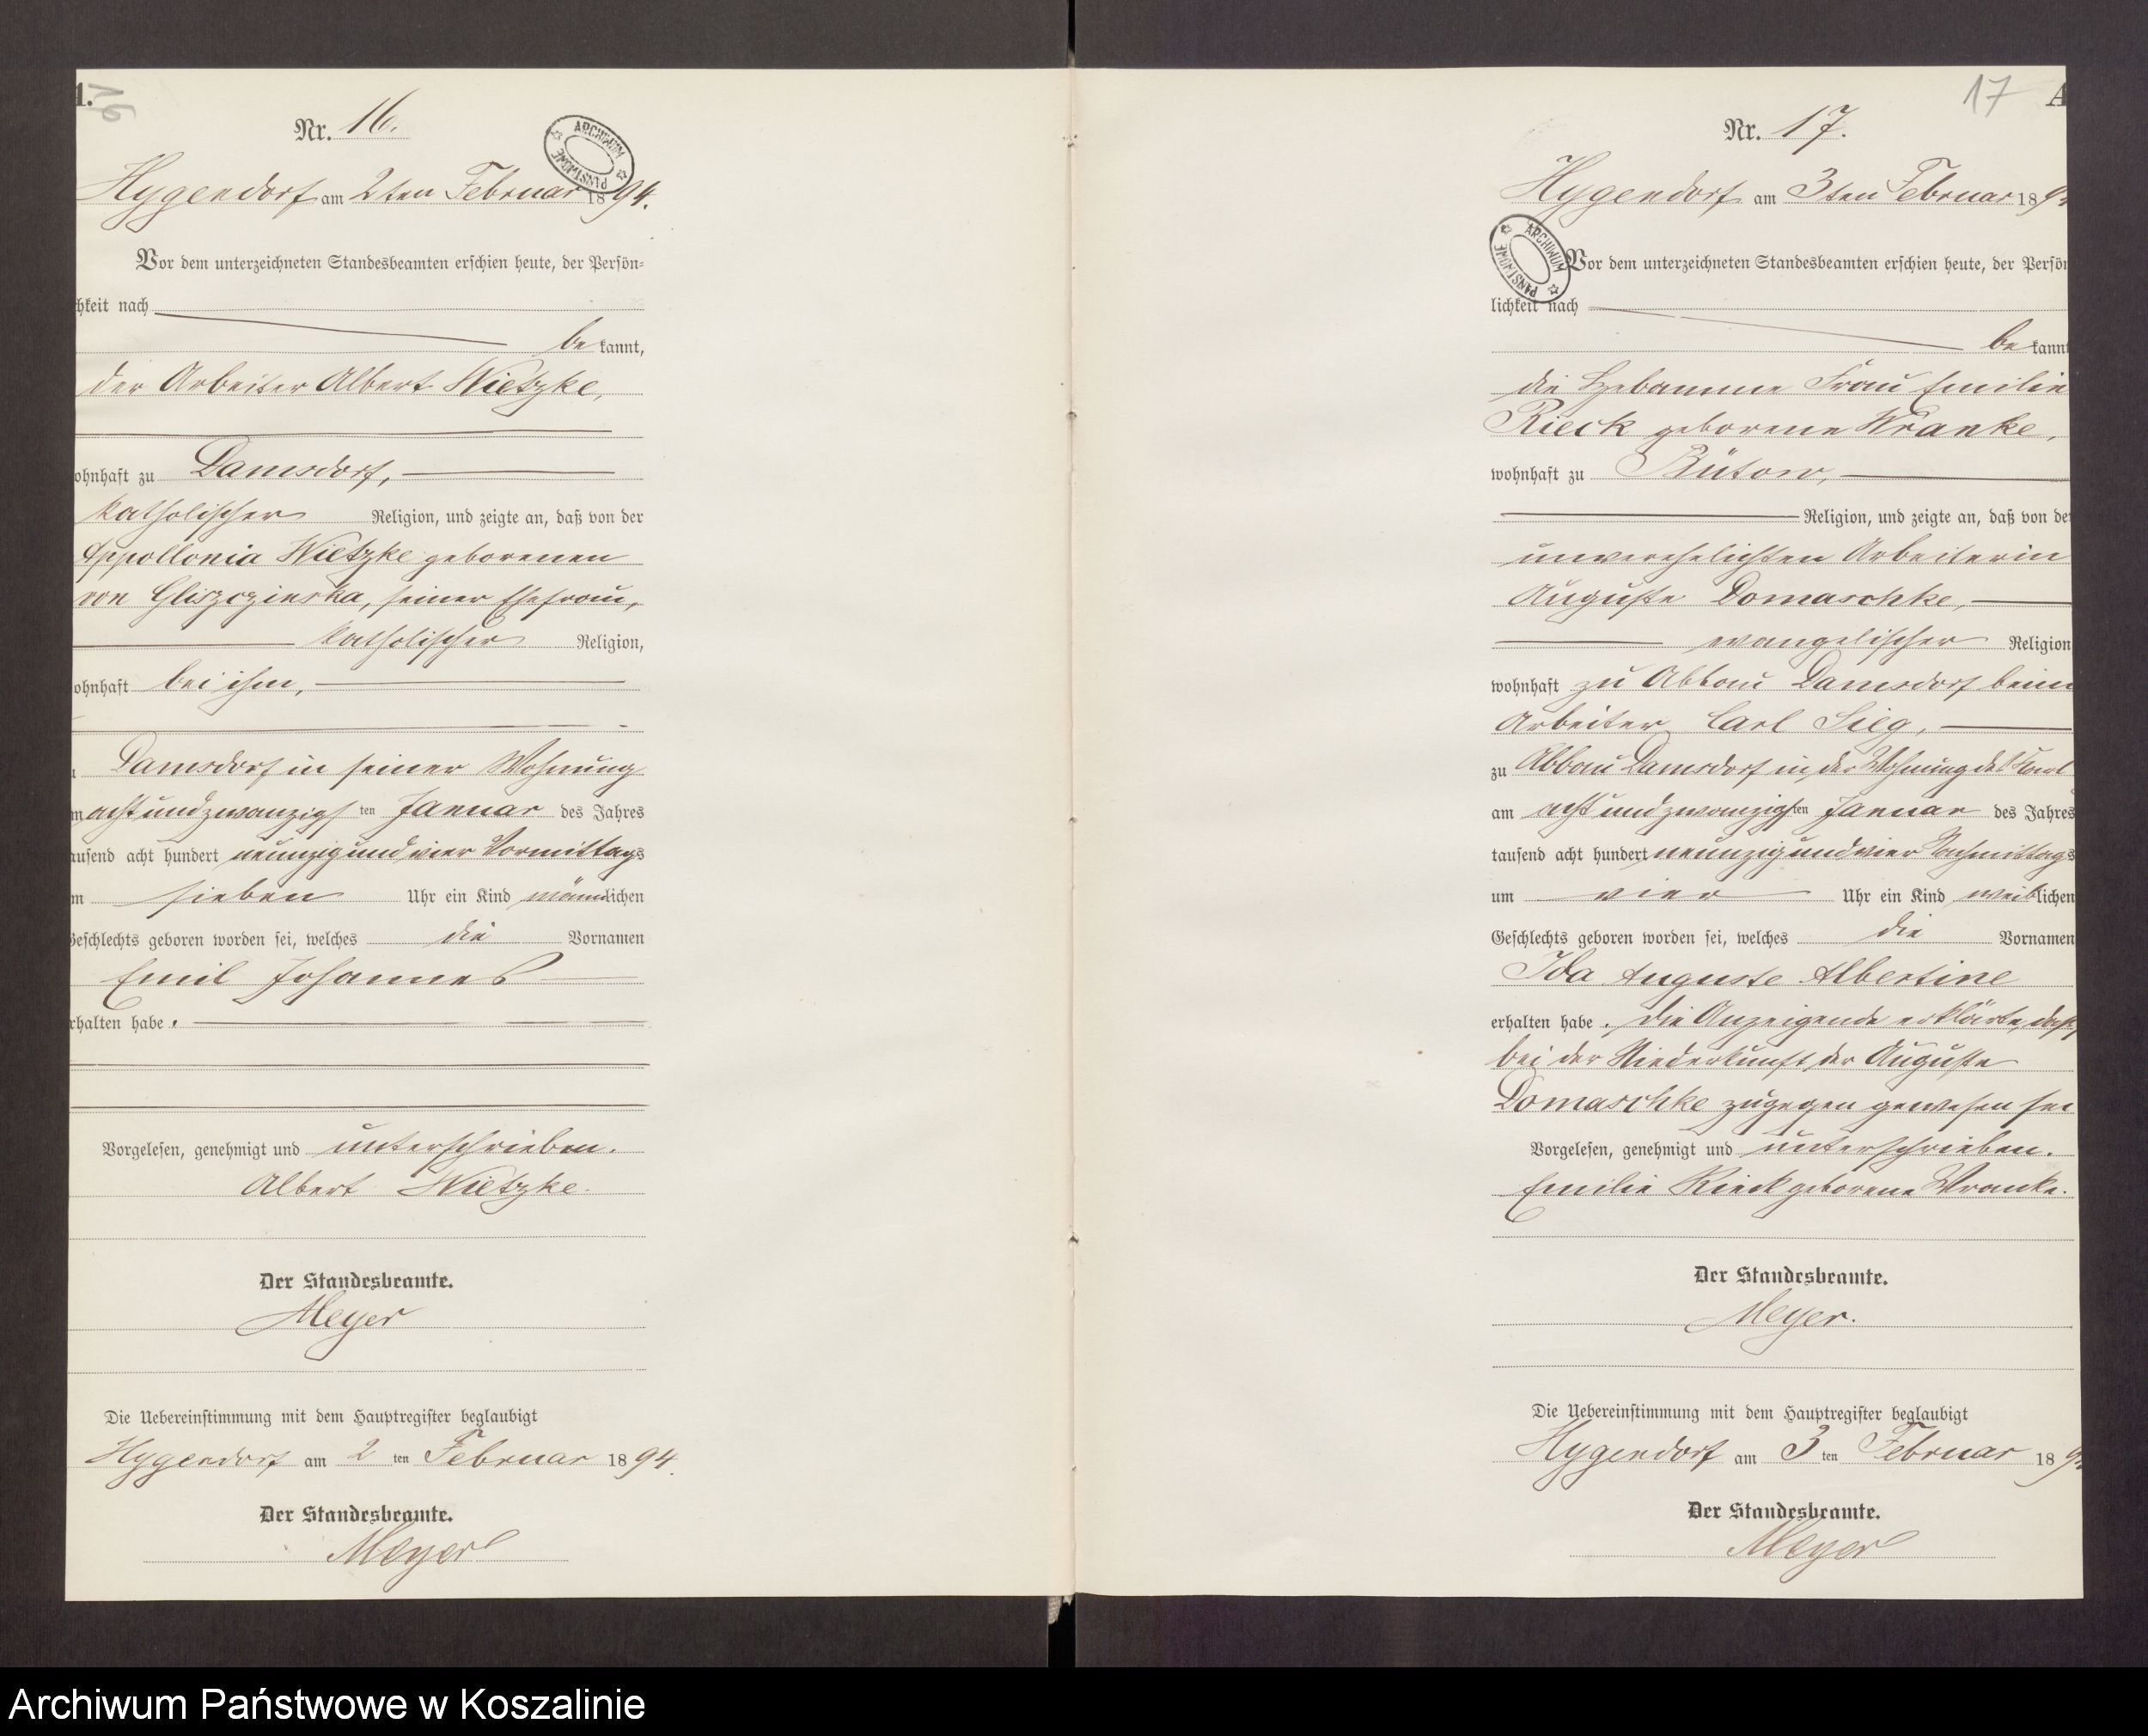 A.
16
Nr. 16.
ARCHIWUM PAŃSTWOWE
Hygendorf am 2ten Februar 1894.
Vor dem unterzeichneten Standesbeamten erschien heute, der Persön-
hkeit nach
be kannt,
der Arbeiter Albert Wietzke,
ohnhaft zu Damsdorf,
katholischer Religion, und zeigte an, daß von der
Appollonia Wietzke geborenen
von Gliszczinska, seiner Ehefrau,
katholischer Religion,
ohnhaft bei ihm,
Damsdorf in seiner Wohnung
m acht und zwanzigs ten Januar des Jahres
ausend acht hundert neunzig und vier Vormittags
m sieben Uhr ein Kind männlichen
Geschlechts geboren worden sei, welches die Vornamen
Emil Johannes
rhalten habe.
Vorgelesen, genehmigt und unterschrieben.
Albert Wietzke.
Der Standesbeamte.
Meyer
Die Uebereinstimmung mit dem Hauptregister beglaubigt
Hygendorf am 2 ten Februar 1894.
Der Standesbeamte.
Meyer
17
A
Nr. 17.
Hygendorf am 3ten Februar 189
ARCHIWUM PAŃSTWOWE
Vor dem unterzeichneten Standesbeamten erschien heute, der Persön
lichkeit nach
be kannt
die Hebamme Frau Emilie
Rieck geborene Wranke,
wohnhaft zu Bütow,
Religion, und zeigte an, daß von der
unverehelichten Arbeiterin
Auguste Domaschke,
evangelischer Religion
wohnhaft zu Abbau Damsdorf beim
Arbeiter Carl Sieg,
zu Abbau Damsdorf in der Wohnung des
am acht und zwanzigsten Januar des Jahres
tausend acht hundert neunzig und vier Nachmittags
um vier Uhr ein Kind weiblichen
Geschlechts geboren worden sei, welches die Vornamen
Ida Auguste Albertine
erhalten habe. Die Anzeigende erklärte, daß
bei der Niederkunft der Auguste
Domaschke zugegen gewesen sei
Vorgelesen, genehmigt und unterschrieben.
Emilie Rieck geborene Wranke.
Der Standesbeamte.
Meyer.
Die Uebereinstimmung mit dem Hauptregister beglaubigt
Hygendorf am 3 ten Februar 189
Der Standesbeamte.
Meyer
Archiwum Państwowe w Koszalinie